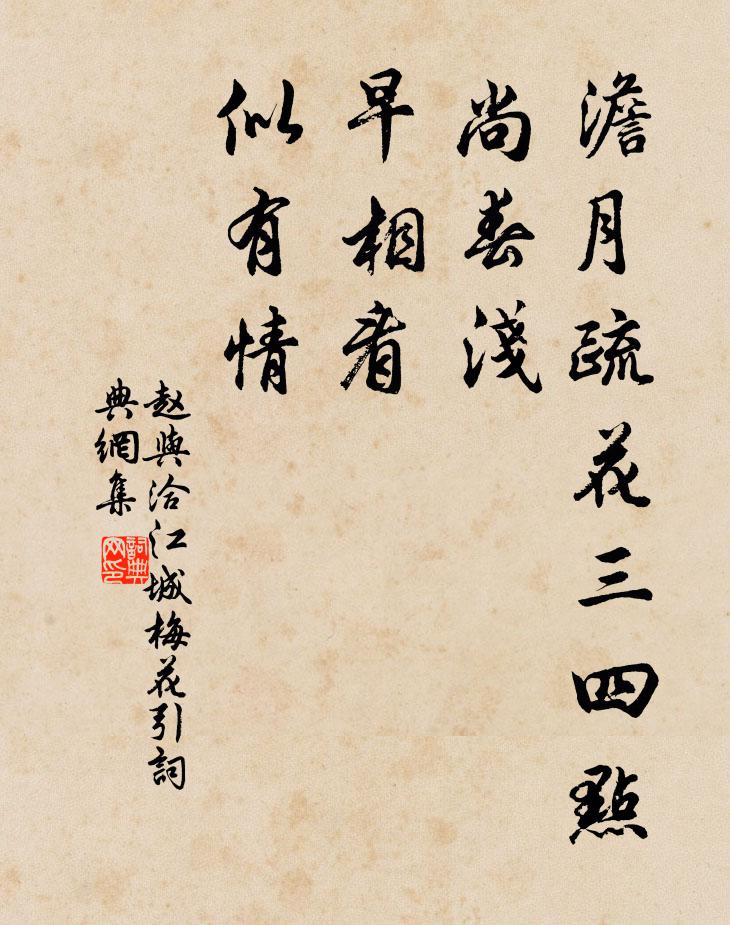 澹月疏花三四點
尚春淺
早相看
似有情
赵與洽江城梅花引詞
典網集
詞典
网印